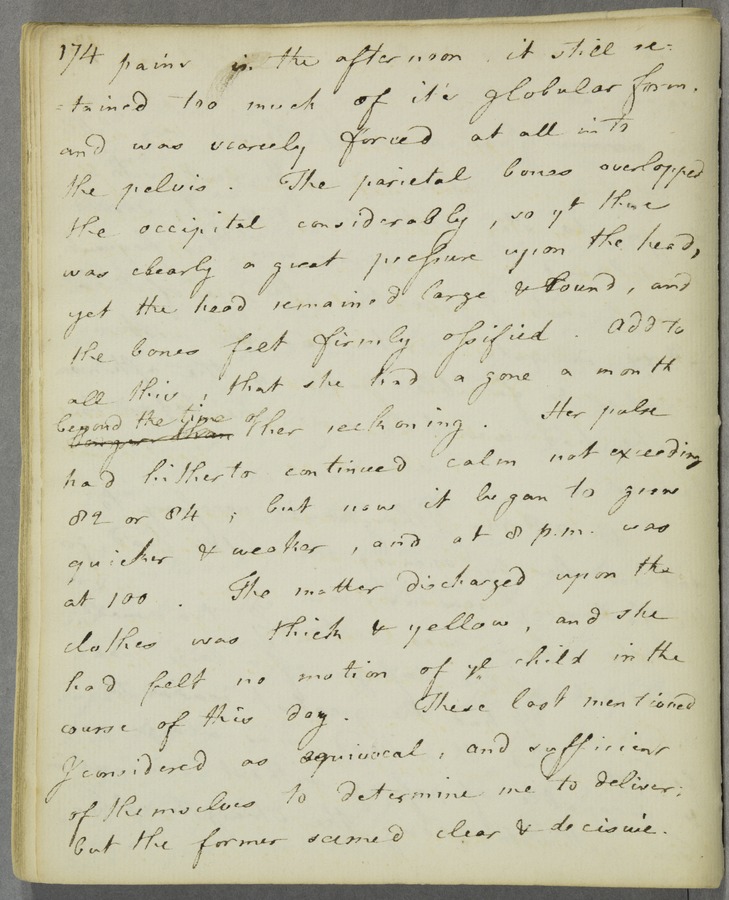 174 pains in the afternoon it still re=
=tained too much of it's globular form.
and was scarcely forced at all into
the pelvis. The parietal bones overlopped
the occipital considerably, so yt there
was clearly a great pressure upon the head,
yet the head remained large & round, and
the bones felt firmly ossified. Add to
all this, that she had a gone a month
beyond the time of
longer than her reckoning. Her pulse
had hitherto continued calm not exceeding
82 or 84; but now it began to grow
quicker & weaker, and at 8 p.m. was
at 100. The matter discharged upon the
clothes was thick & yellow, and she
had felt no motion of ye child in the
course of this day. These last mentioned
I considered as equivocal, and sufficient
of themselves to determine me to deliver;
but the former seemed clear & decisive.